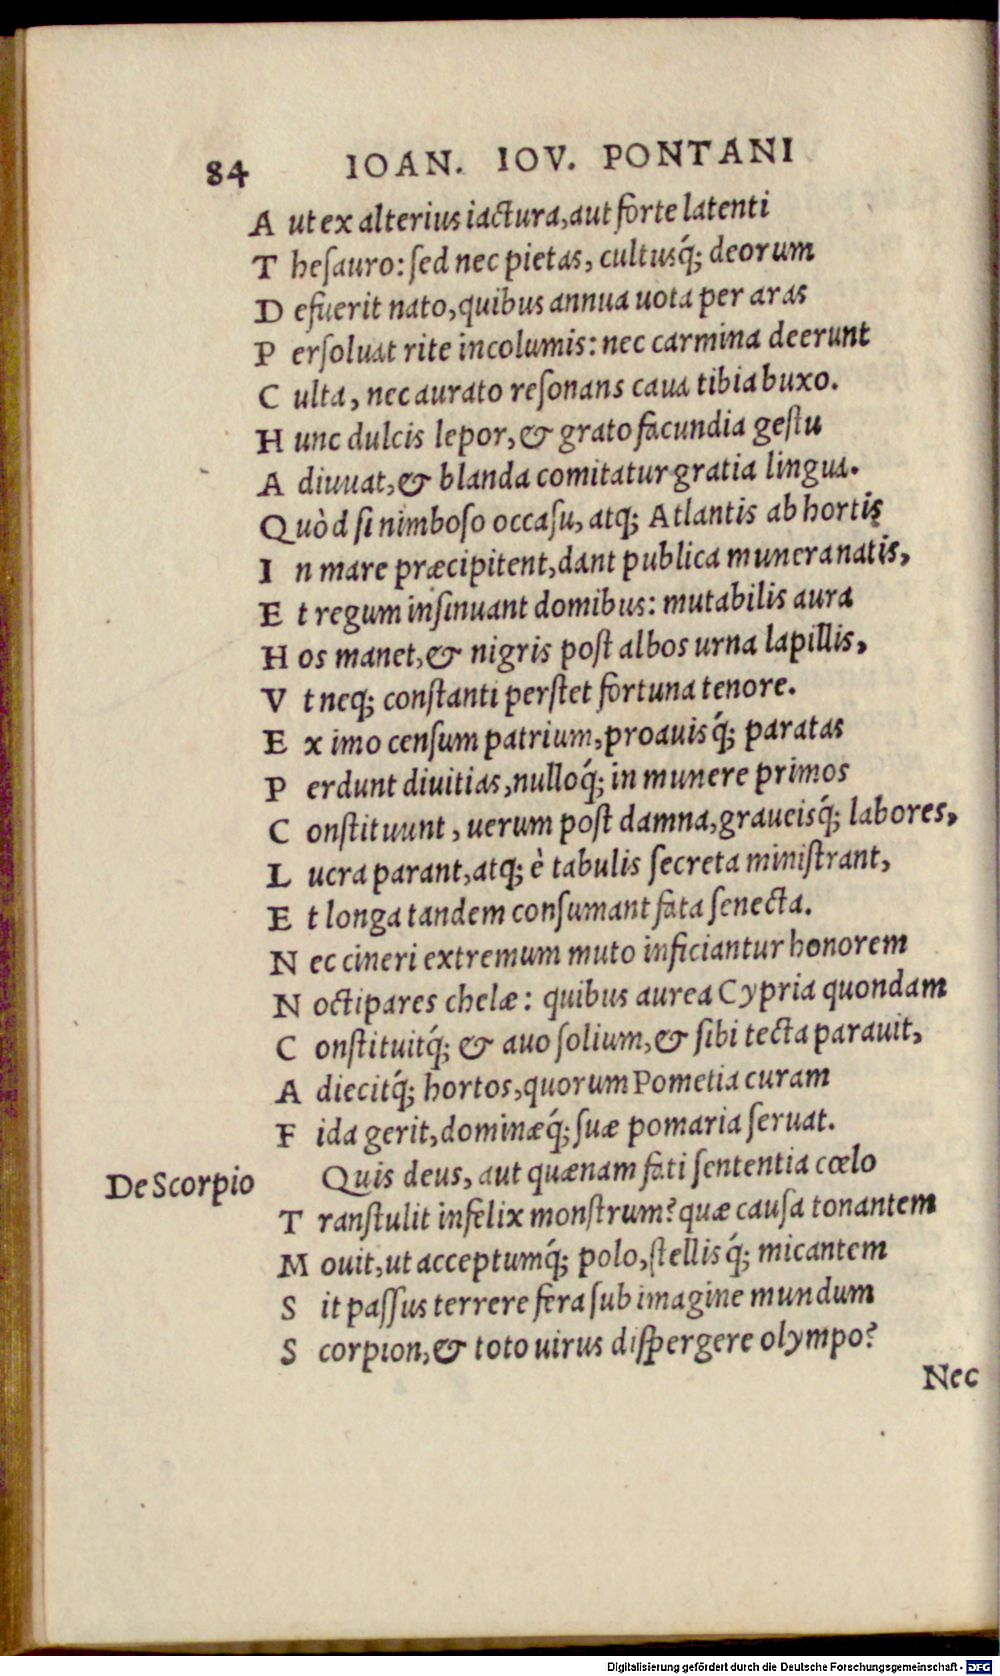 84 IOAN. IOV. PONTANI
A ut ex alterius iactura, aut forte latenti
T hesauro: sed nec pietas, cultusq́; deorum
D efuerit nato, quibus annua uota per aras
P ersoluat rite incolumis: nec carmina deerunt
C ulta, nec aurato resonans caua tibia buxo.
H unc dulcis lepor, & grato facundia gestu
A diuuat, & blanda comitatur gratia lingua.
Quòd si nimboso occasu, atq; Atlantis ab hortis
I n mare præcipitent, dant publica munera natis,
E t regum insinuant domibus: mutabilis aura
H os manet, & nigris post albos urna lapillis,
V t neq; constanti perstet fortuna tenore.
E x imo censum patrium, proauisq́; paratas
P erdunt diuitias, nulloq́; in munere primos
C onstituunt, uerum post damna, graueisq́; labores,
L ucra parant, atq; è tabulis secreta ministrant,
E t longa tandem consumant fata senecta.
N ec cineri extremum muto inficiantur honorem
N octipares chelæ: quibus aurea Cypria quondam
C onstituitq́; & auo solium, & sibi tecta parauit,
A diecitq́; hortos, quorum Pometia curam
F ida gerit, dominæq́; suæ pomaria seruat.
De Scorpio Quis deus, aut quænam fati sententia cœlo
T ranstulit infelix monstrum? quæ causa tonantem
M ouit, ut acceptumq́; polo, stellisq́; micantem
S it passus terrere fera sub imagine mundum
S corpion, & toto uirus dispergere olympo?
Nec
Digitalisierung gefördert durch die Deutsche Forschungsgemeinschaft - DFG